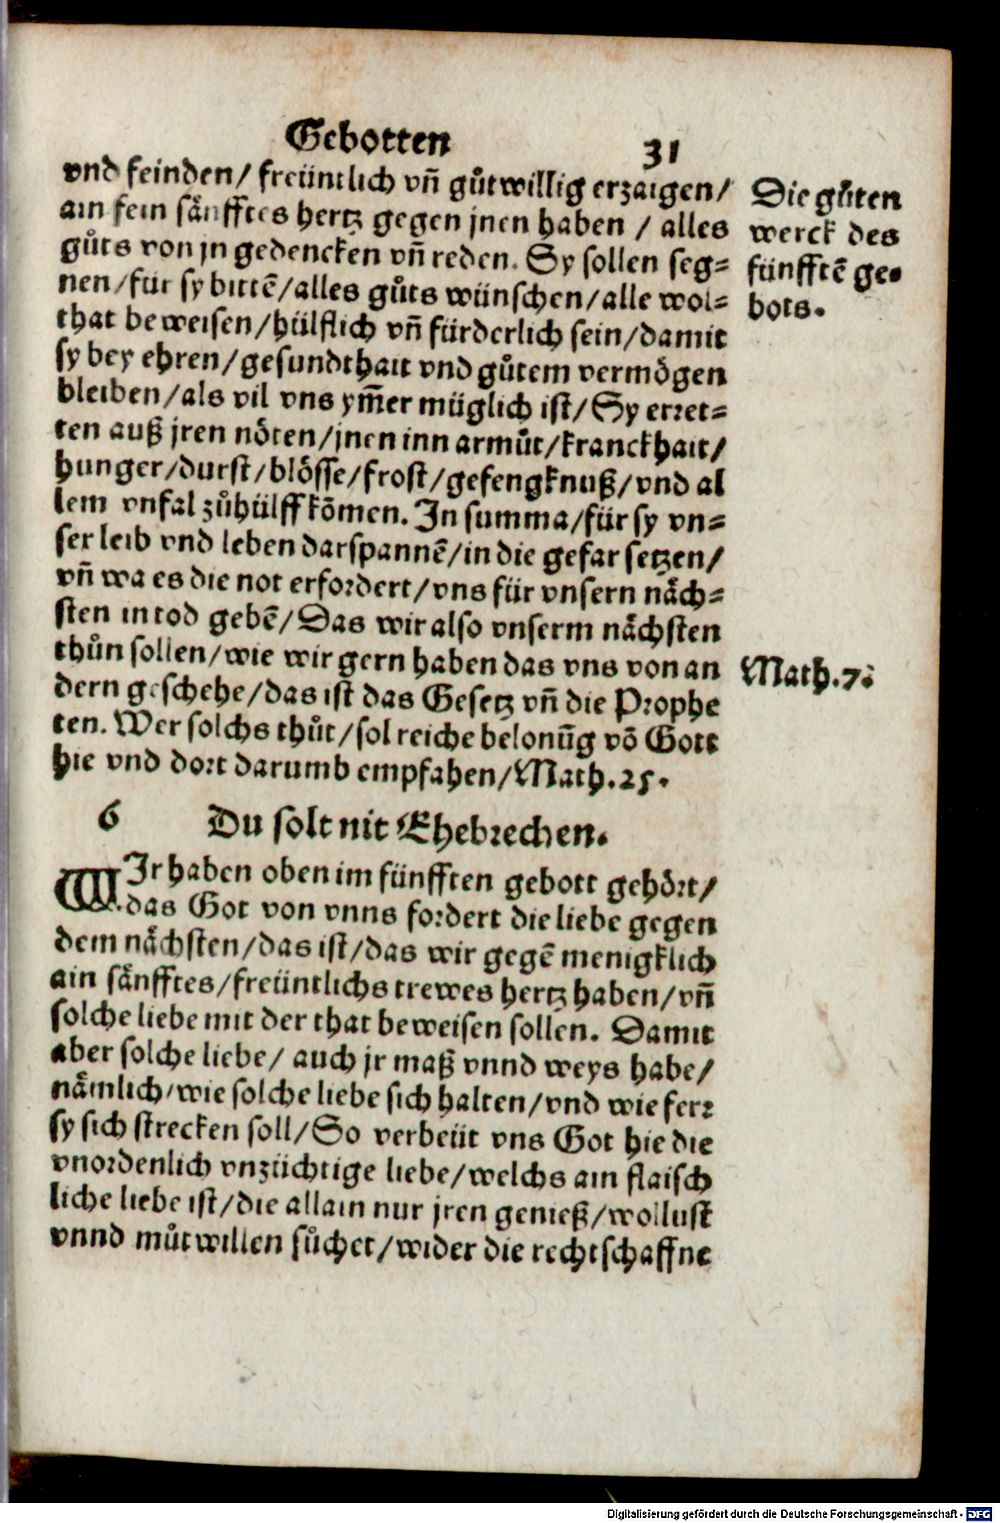 Gebotten 31
vnd feinden/ freüntlich vñ gůtwillig erzaigen/
ain fein sänfftes hertz gegen jnen haben / alles
gůts von jn gedencken vñ reden. Sy sollen seg=
nen/für sy bittẽ/alles gůts wünschen/alle wol=
that beweisen/hülflich vñ fürderlich sein/damit
sy bey ehren/gesundthait vnd gůtem vermögen
bleiben/als vil vns ym̃er müglich ist/Sy erret=
ten auß jren nöten/jnen inn armůt/kranckhait/
hunger/durst/blösse/frost/gefengknuß/vnd al
lem vnfal zůhülff kõmen. In summa/für sy vn=
ser leib vnd leben darspannẽ/in die gefar setzen/
vñ wa es die not erfordert/vns für vnsern näch=
sten in tod gebẽ/Das wir also vnserm nächsten
thůn sollen/wie wir gern haben das vns von an
dern geschehe/das ist das Gesetz vñ die Prophe
ten. Wer solchs thůt/sol reiche belonũg võ Gott
hie vnd dort darumb empfahen/Math.25.
Die gůten
werck des
fünfftẽ ge=
bots.
Math.7.
6 Du solt nit Ehebrechen.
WIr haben oben im fünfften gebott gehört/
das Got von vnns fordert die liebe gegen
dem nächsten/das ist/das wir gegẽ menigklich
ain sänfftes/freüntlichs trewes hertz haben/vñ
solche liebe mit der that beweisen sollen. Damit
aber solche liebe/ auch jr maß vnnd weys habe/
nämlich/wie solche liebe sich halten/vnd wie ferr
sy sich strecken soll/So verbeüt vns Got hie die
vnordenlich vnzüchtige liebe/welchs ain flaisch
liche liebe ist/die allain nur jren genieß/wollust
vnnd můtwillen sůchet/wider die rechtschaffne
Digitalisierung gefördert durch die Deutsche Forschungsgemeinschaft - DFG